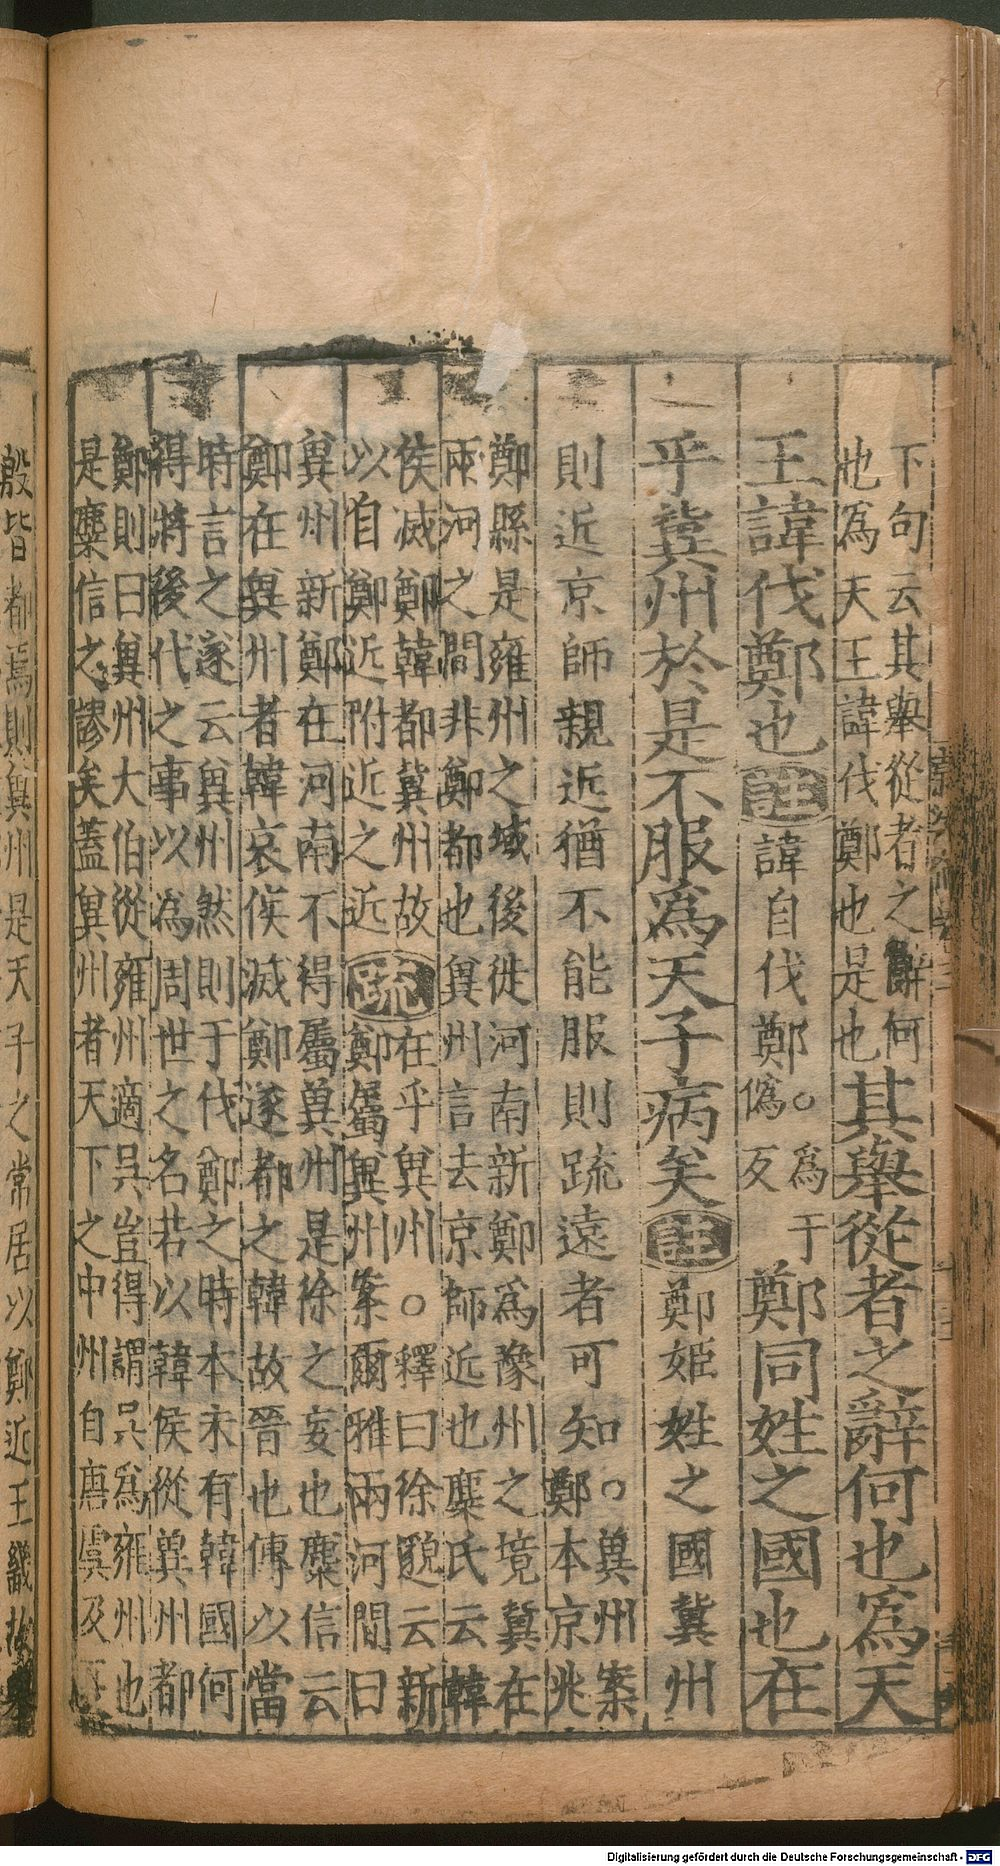 下句云其舉從者之辭何
也爲天王諱伐鄭也是也其舉從者之辭何也爲天
王諱伐鄭也註諱自伐鄭○爲于
僞反鄭同姓之國也在
乎冀州於是不服爲天子病矣註鄭姬姓之國冀州
則近京師親近猶不能服則疏遠者可知○冀州案
鄭本京兆
鄭縣是雍州之域後徙河南新鄭爲豫州之境冀在
兩河之間非鄭都也冀州言去京師近也麋氏云韓
侯滅鄭韓都冀州故
以目鄭近附近之近疏在乎冀州○釋曰徐邈云新
鄭屬冀州案爾雅兩河間曰
冀州新鄭在河南不得屬冀州是徐之妄也麋信云
鄭在冀州者韓哀侯滅鄭遂都之韓故晉也傳以當
時言之遂云冀州然則于伐鄭之時本未有韓國何
得將後代之事以爲周世之名若以韓侯從冀州都
鄭則曰冀州大伯從雍州適吳豈得謂吳爲雍州也
是麋信之謬矣蓋冀州者天下之中州自唐虞及
殷皆都焉則冀州是天子之常居以鄭近王畿故
Digitalisierung gefördert durch die Deutsche Forschungsgemeinschaft - DFG